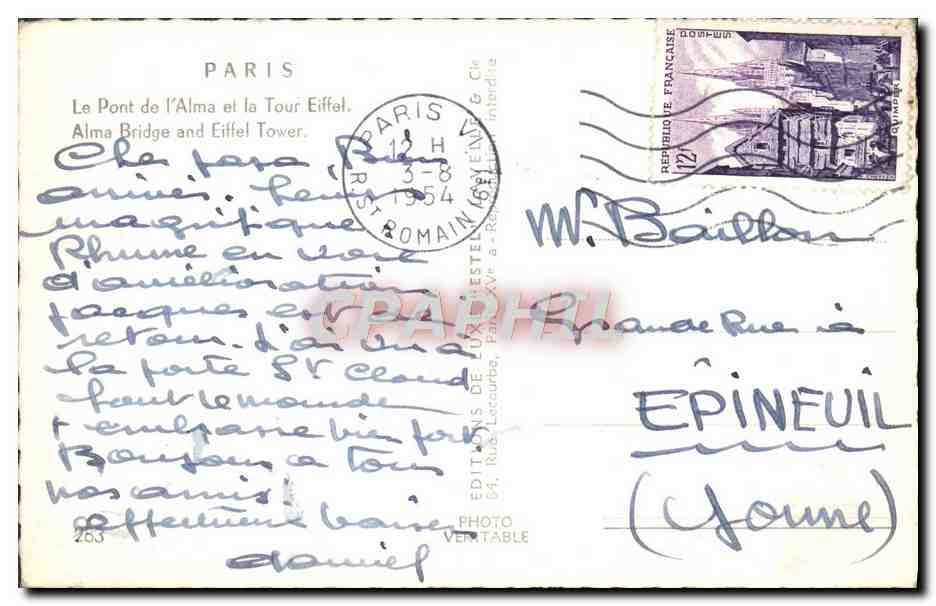 PARIS
Le Pont de l'Alma et la Tour Eiffel.
Alma Bridge and Eiffel Tower.
Cher papa, Bien
arrivés. temps
magnifique
Rhume en voie
d'amélioration
Jacques est de
retour. J'ai vu à
la porte St Cloud
tout le monde
t'embrasse bien fort
Bonjour à tous
nos amis
affectueux baisers
daniel
263
PHOTO
VÉRITABLE
EDITIONS DE LUXE ESTEL
84, Rue Lecourbe, Paris XVe
& Cie
Interdite
PARIS VI
12 H
3-8
1954
R. ST ROMAIN (6e)
RÉPUBLIQUE FRANÇAISE
POSTES
QUIMPER
12F
CPAPHIL
M. Baillon
Grande Rue à
ÉPINEUIL
(Yonne)